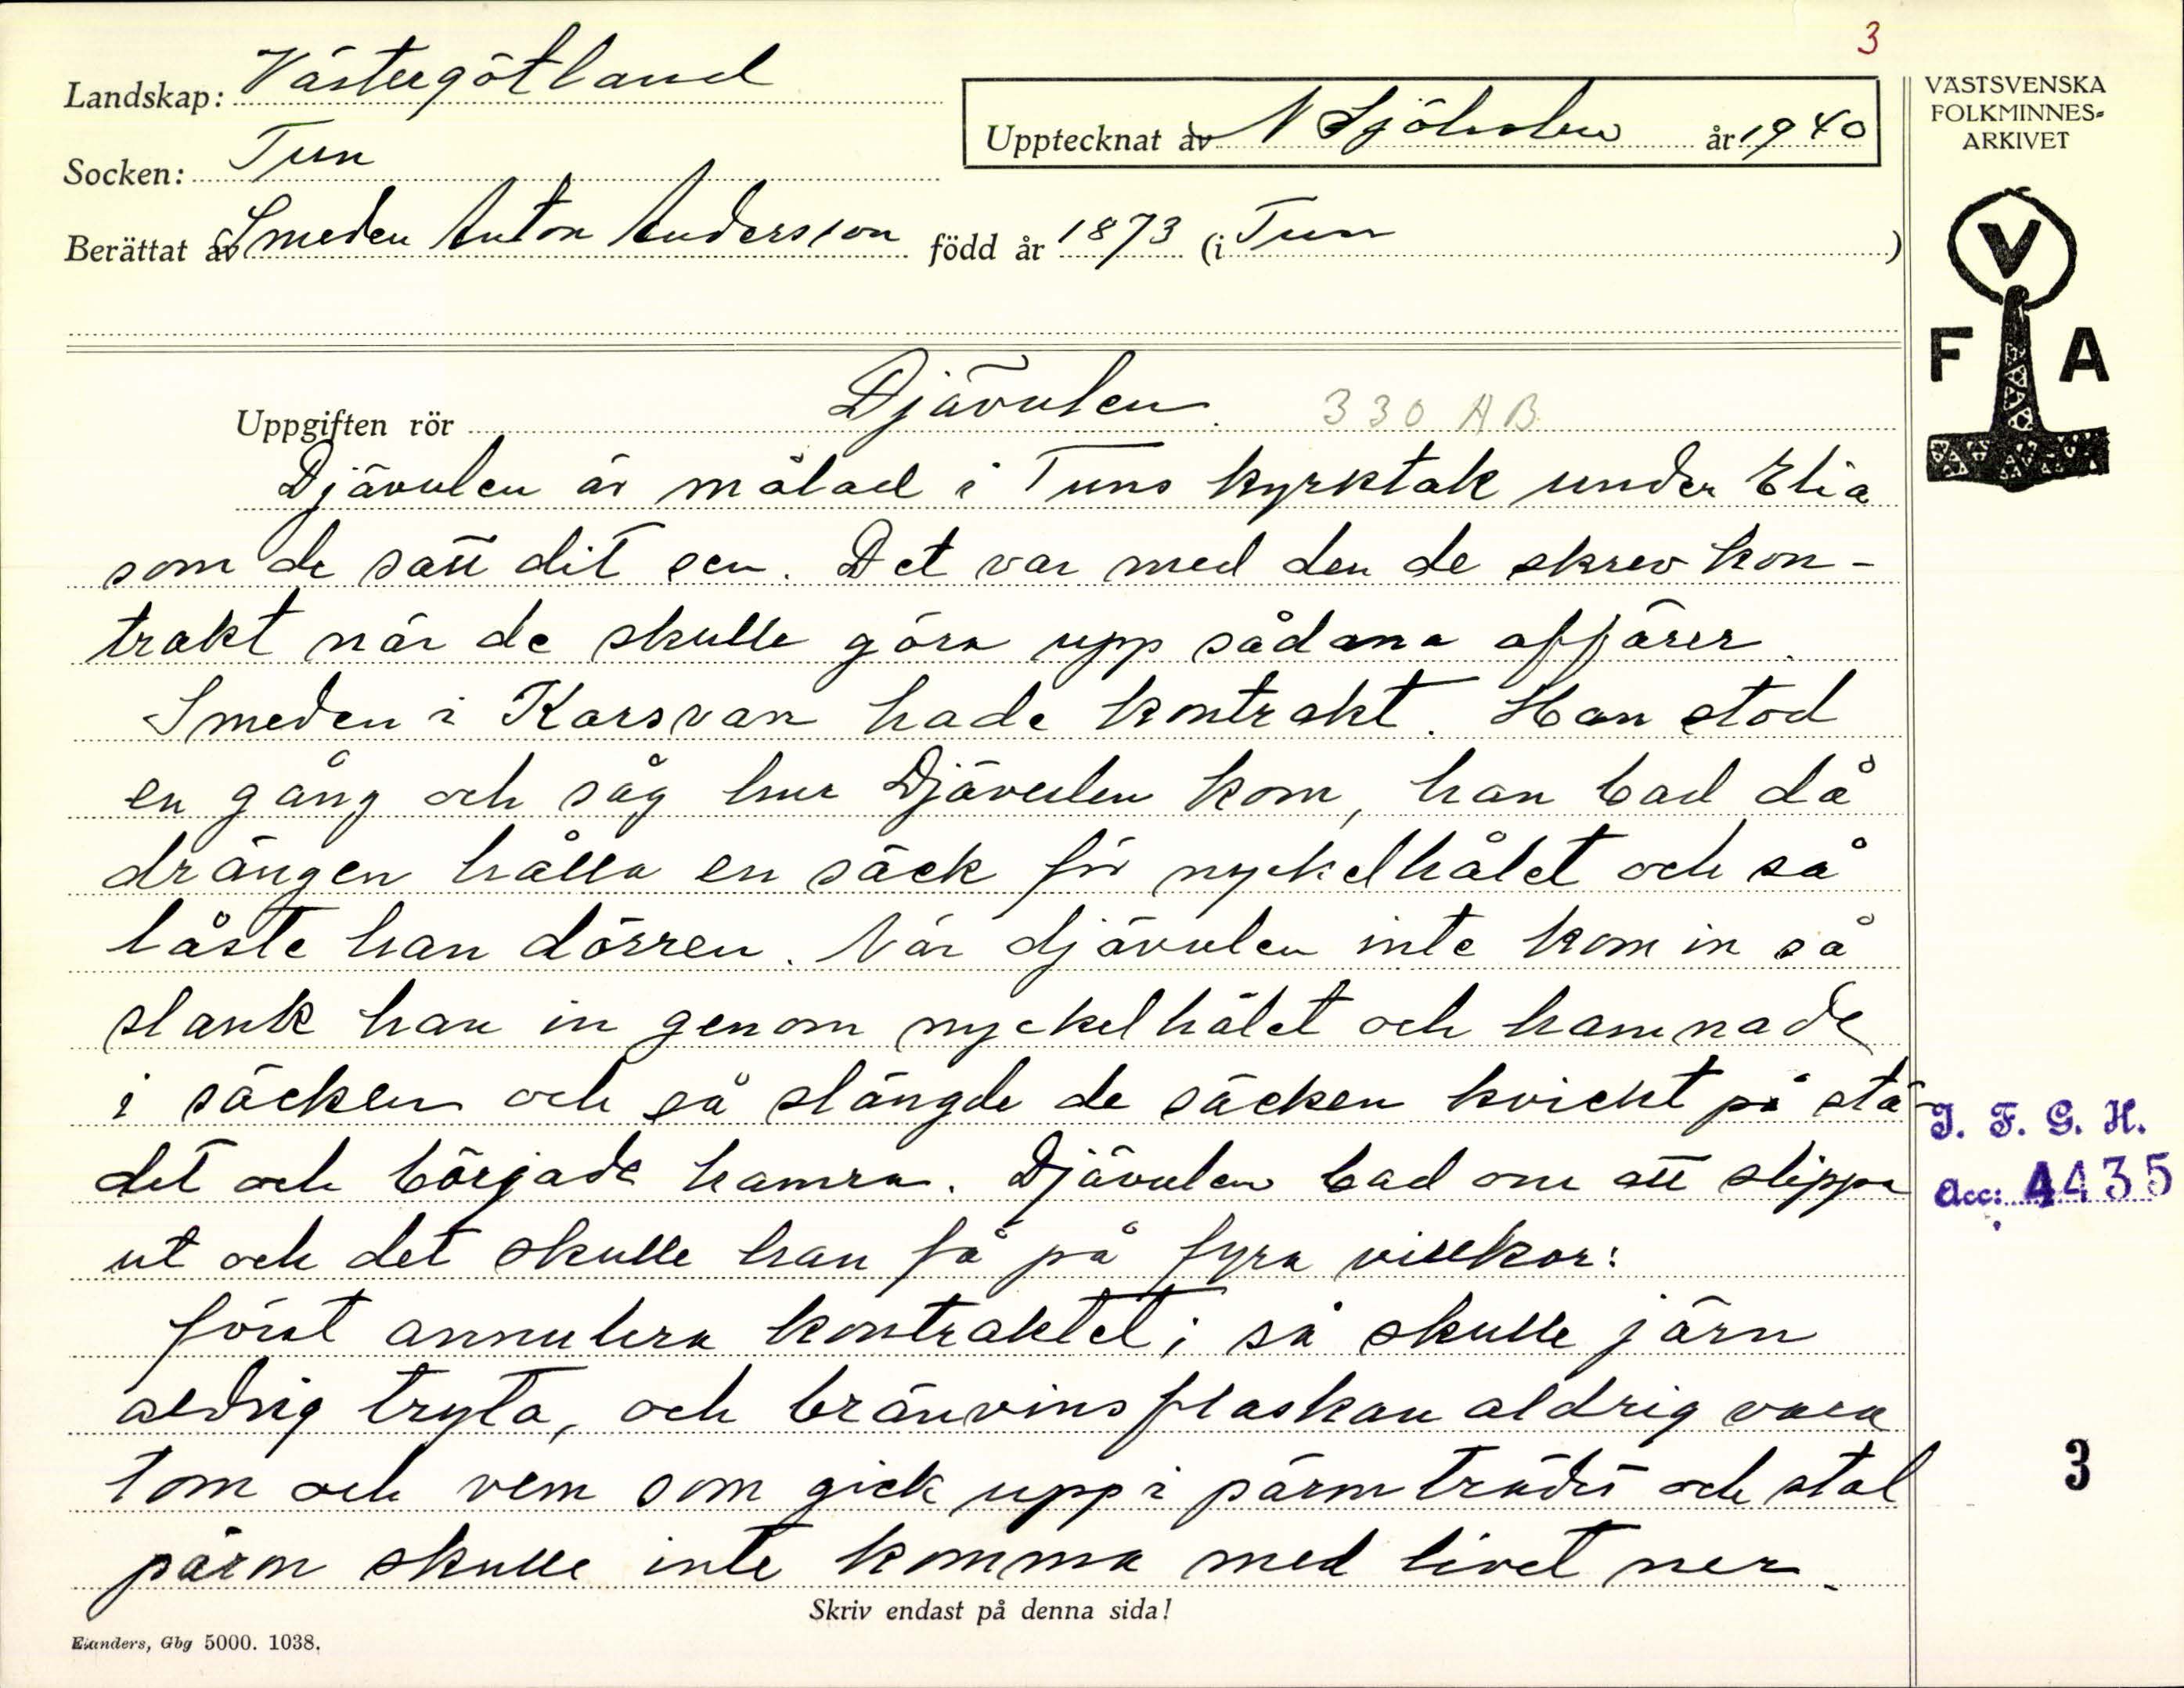 3
Landskap: Västergötland
Upptecknat av N Sjöholm år 1940
VÄSTSVENSKA
FOLKMINNES-
ARKIVET
Socken: Tun
Berättat av Smeden Anton Andersson född år 1873 (i Tun )
V
F A
Uppgiften rör Djävulen. 330 AB
Djävulen är målad i Tuns kyrktak under Elia
som de satt dit sen. Det var med den de skrev kon-
trakt när de skulle göra upp sådana affärer.
Smeden i Karsvan hade kontrakt. Han stod
en gång och såg hur Djävulen kom, han bad då
drängen hålla en säck för nyckelhålet och så
låste han dörren. När djävulen inte kom in så
slank han in genom nyckelhålet och hamnade
i säcken och så slängde de säcken kvickt på stä-
det och började hamra. Djävulen bad om att slippa
ut och det skulle han få på fyra villkor:
först annulera kontraktet; så skulle järn
aldrig tryta, och bränvinsflaskan aldrig vara
tom och vem som gick upp i pärmträdet och stal
pärm skulle inte komma med livet ner.
J. F. G. H.
Acc: 4435
3
Skriv endast på denna sida!
Elanders, Gbg 5000. 1038.